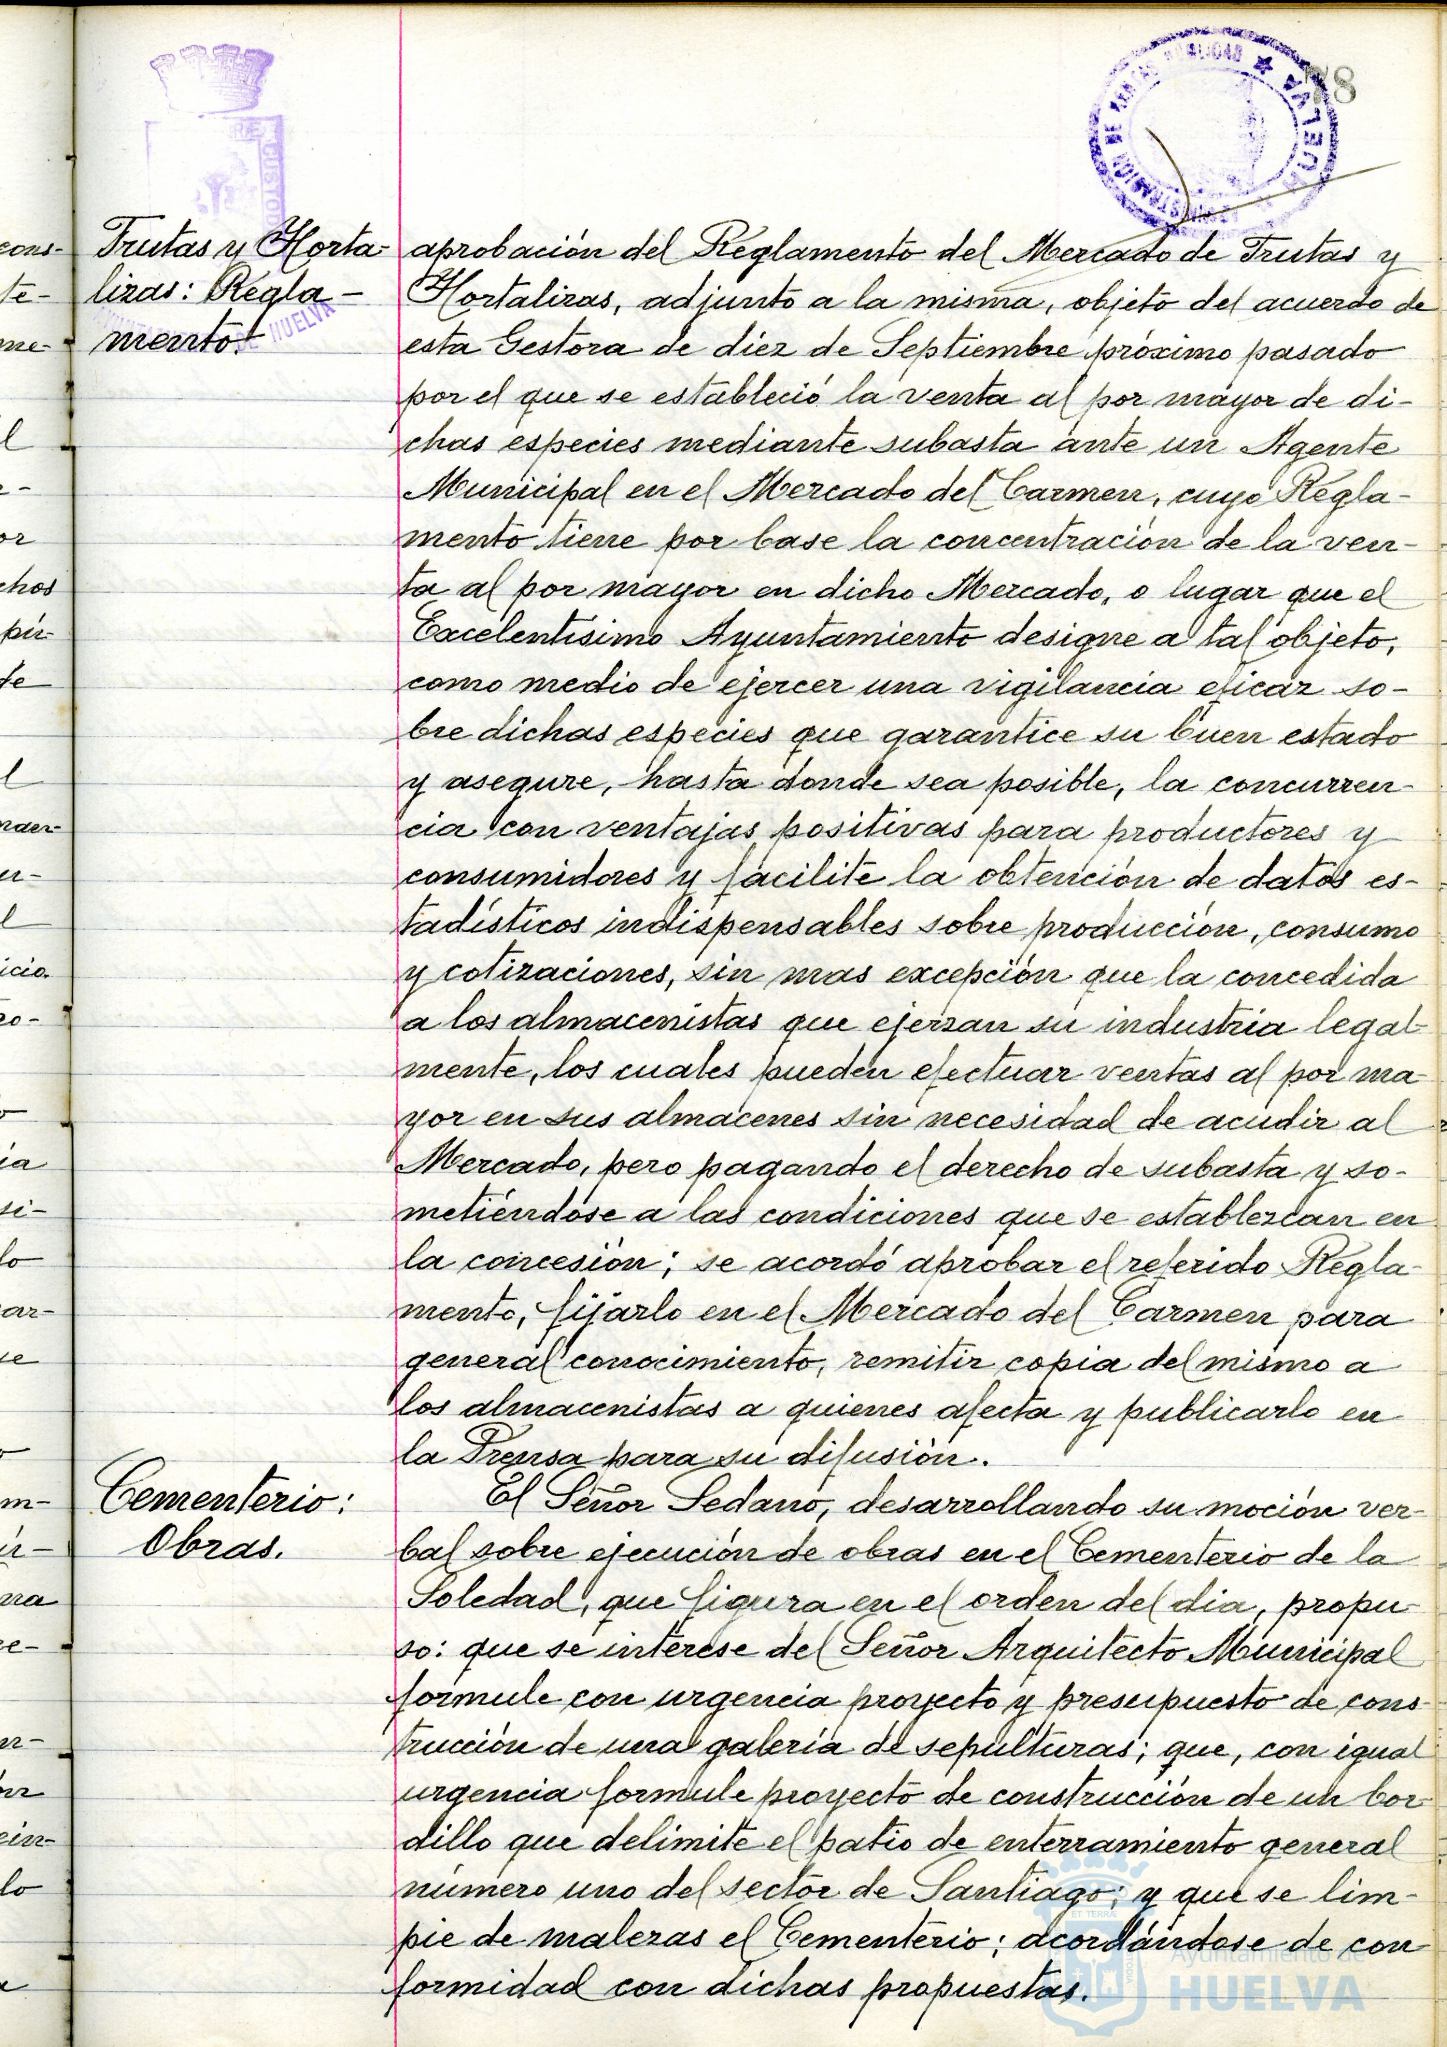 78
Frutas y Horta-
lizas: Regla-
mento.
aprobación del Reglamento del Mercado de Frutas y
Hortalizas, adjunto a la misma, objeto del acuerdo de
esta Gestora de diez de Septiembre próximo pasado
por el que se estableció la venta al por mayor de di-
chas especies mediante subasta ante un Agente
Municipal en el Mercado del Carmen, cuyo Regla-
mento tiene por base la concentración de la ven-
ta al por mayor en dicho Mercado, o lugar que el
Excelentísimo Ayuntamiento designe a tal objeto,
como medio de ejercer una vigilancia eficaz so-
bre dichas especies que garantice su buen estado
y asegure, hasta donde sea posible, la concurren-
cia con ventajas positivas para productores y
consumidores y facilite la obtención de datos es-
tadísticos indispensables sobre producción, consumo
y cotizaciones, sin mas excepción que la concedida
a los almacenistas que ejerzan su industria legal-
mente, los cuales pueden efectuar ventas al por ma-
yor en sus almacenes sin necesidad de acudir al
Mercado, pero pagando el derecho de subasta y so-
metiéndose a las condiciones que se establezcan en
la concesión; se acordó aprobar el referido Regla-
mento, fijarlo en el Mercado del Carmen para
general conocimiento, remitir copia del mismo a
los almacenistas a quienes afecta y publicarlo en
la Prensa para su difusión.
Cementerio:
Obras.
El Señor Sedano, desarrollando su moción ver-
bal sobre ejecución de obras en el Cementerio de la
Soledad, que figura en el orden del dia, propu-
so: que se interese del Señor Arquitecto Municipal
formule con urgencia proyecto y presupuesto de cons-
trucción de una galería de sepulturas; que, con igual
urgencia formule proyecto de construcción de un bor-
dillo que delimite el patio de enterramiento general
número uno del sector de Santiago; y que se lim-
pie de malezas el Cementerio; acordándose de con
formidad con dichas propuestas.
Ayuntamiento de
HUELVA